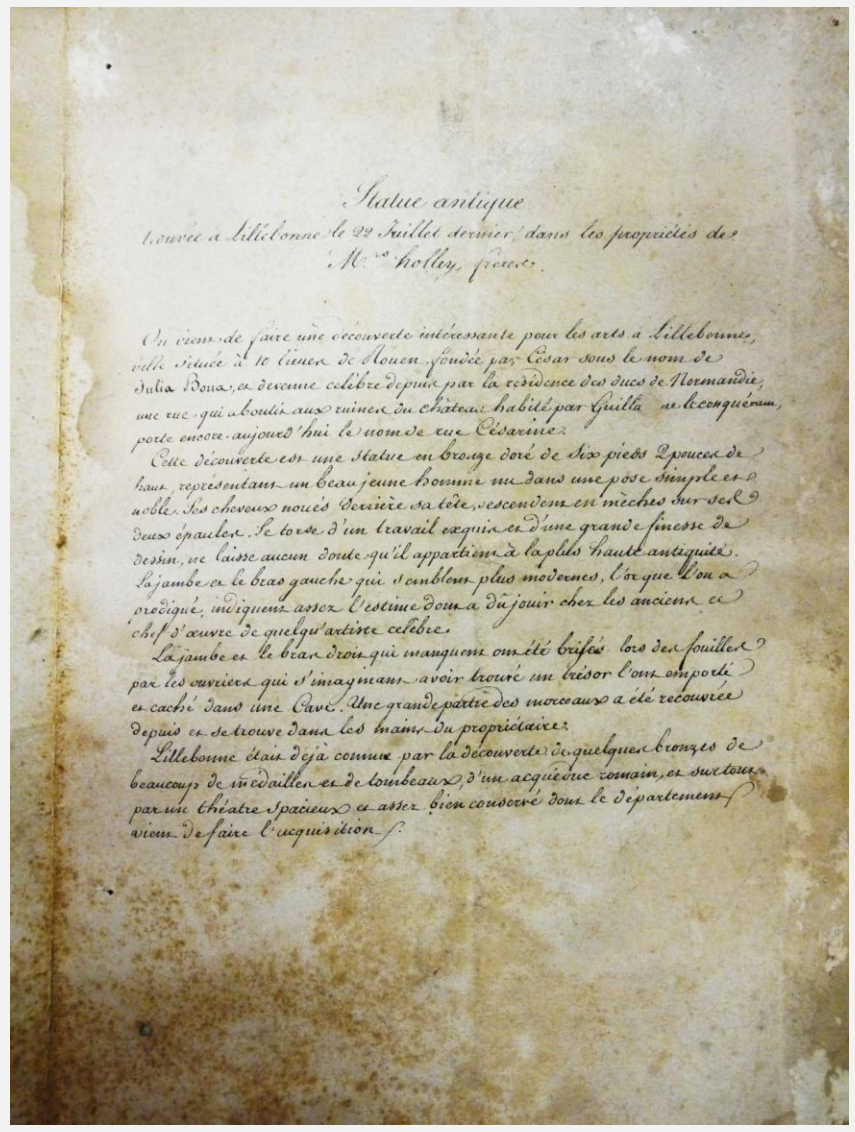 Statue antique
trouvée à Lillebonne le 22 Juillet dernier, dans les propriétés de
M.rs holley, frères.
On vient de faire une découverte intéressante pour les arts à Lillebonne,
ville située à 10 lieues de Rouen, fondée par César sous le nom de
Julia Bona, et devenue célèbre depuis par la résidence des ducs de Normandie,
une rue qui aboutit aux ruines du château habité par Guilla me le conquérant,
porte encore aujourd'hui le nom de rue Césarine.
Cette découverte est une statue en bronze doré de six pieds 2 pouces de
haut, représentant un beau jeune homme nu dans une pose simple et
noble. Ses cheveux noués derrière sa tête, descendent en mèches sur ses
deux épaules. Le torse d'un travail exquis et d'une grande finesse de
dessin, ne laisse aucun doute qu'il appartient à la plus haute antiquité.
La jambe et le bras gauche qui semblent plus modernes, l'or que l'on a
prodigué, indiquent assez l'estime dont a dû jouir chez les anciens ce
chef d'œuvre de quelqu'artiste célèbre.
La jambe et le bras droit qui manquent ont été brisés lors des fouilles
par les ouvriers qui s'imaginant avoir trouvé un trésor l'ont emporté
et caché dans une Cave. Une grande partie des morceaux a été recouvrée
depuis et se trouve dans les mains du propriétaire.
Lillebonne était déjà connue par la découverte de quelques bronzes de
beaucoup de médailles et de tombeaux, d'un acqueduc romain, et surtout
par un théatre spacieux et assez bien conservé dont le département
vient de faire l'acquisition.